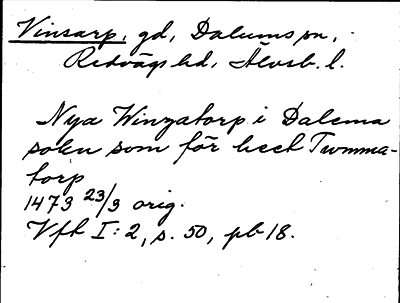 Vinsarp, gd, Dalums sn,
Redvägs hd, Älvsb. l.
Nya Winzatorp i Dalema
soken som för heet Twmma-
torp
1473 23/3 orig.
Vft I:2, s. 50, pb 18.